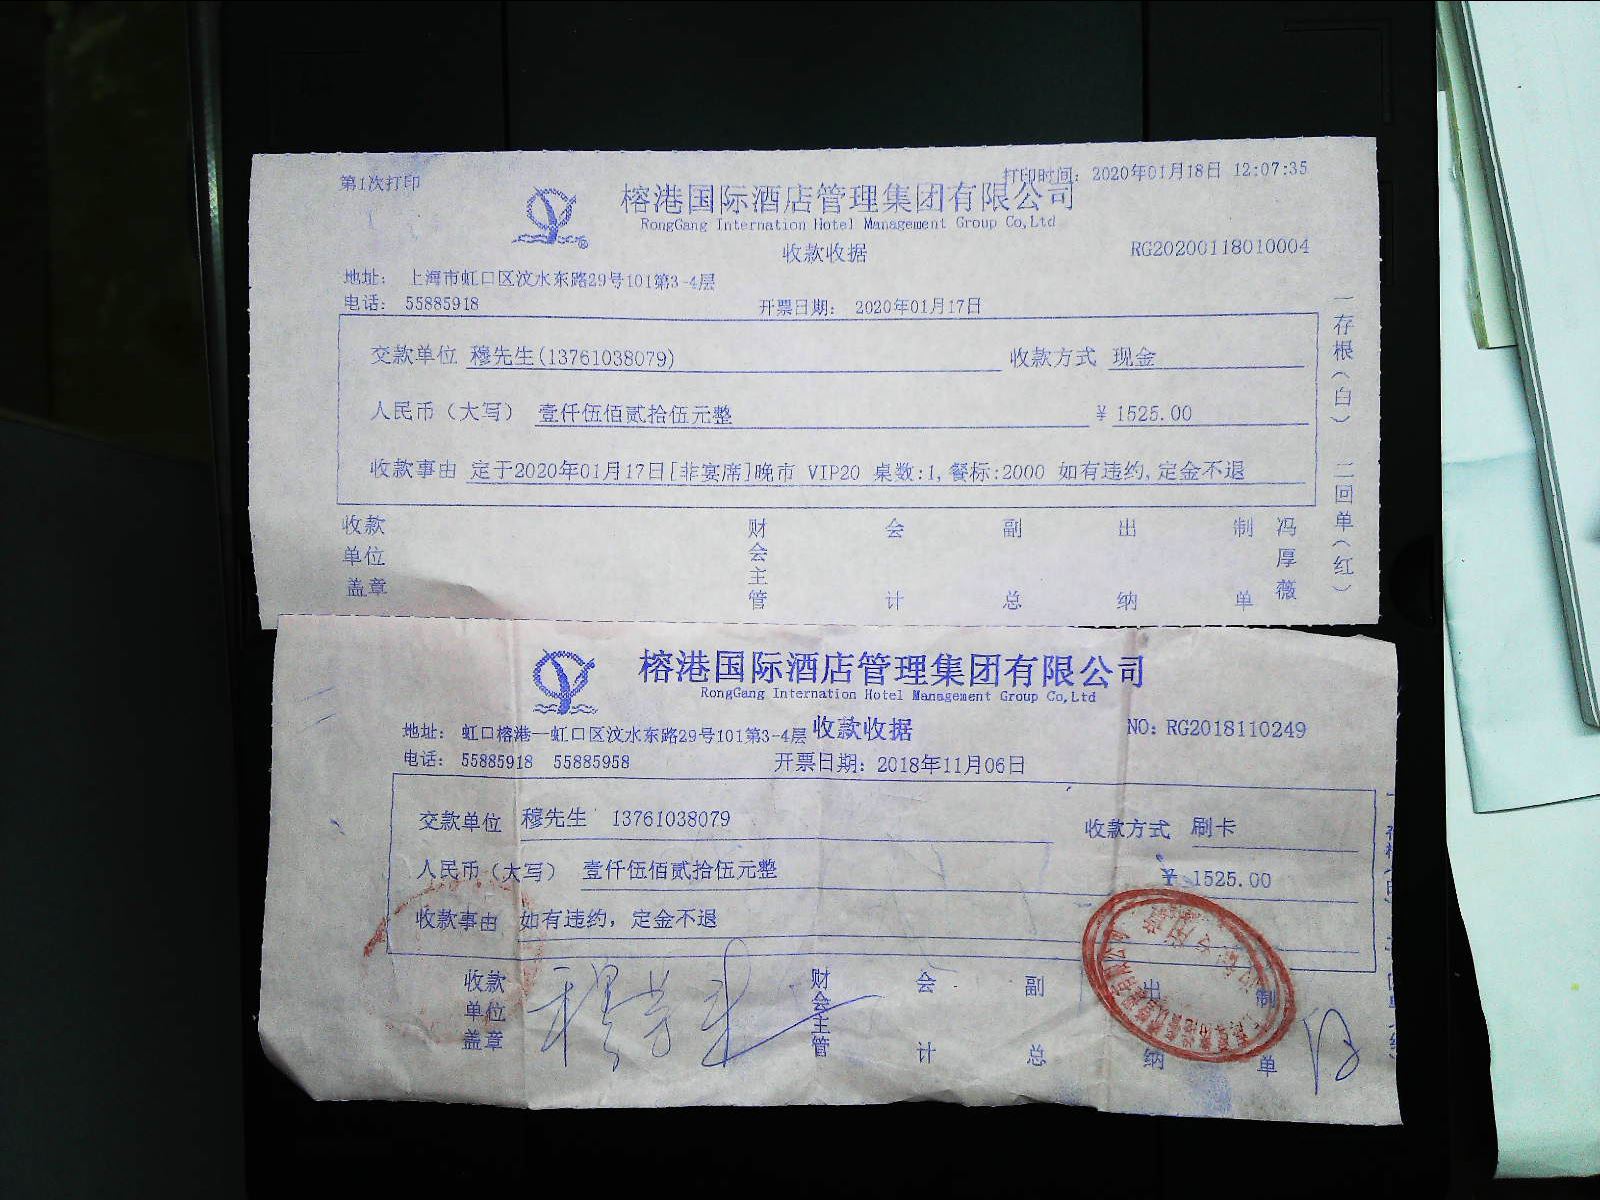 第1次打印
打印时间: 2020年01月18日 12:07:35
榕港国际酒店管理集团有限公司
RongGang Internation Hotel Management Group Co,Ltd
收款收据
RG20200118010004
地址: 上海市虹口区汶水东路29号101第3-4层
电话: 55885918
开票日期: 2020年01月17日
交款单位 穆先生(13761038079)
收款方式 现金
人民币(大写) 壹仟伍佰贰拾伍元整
¥ 1525.00
收款事由 定于2020年01月17日[非宴席]晚市 VIP20 桌数:1,餐标:2000 如有违约,定金不退
收款单位盖章
财会主管
会计
副总
出纳
制单
冯厚薇
一存根(白) 二回单(红)
榕港国际酒店管理集团有限公司
RongGang Internation Hotel Management Group Co,Ltd
地址: 虹口榕港—虹口区汶水东路29号101第3-4层
收款收据
NO: RG2018110249
电话: 55885918 55885958
开票日期: 2018年11月06日
交款单位 穆先生 13761038079
收款方式 刷卡
人民币(大写) 壹仟伍佰贰拾伍元整
¥ 1525.00
收款事由 如有违约, 定金不退
收款单位盖章
财会主管
会计
副总
出纳
制单